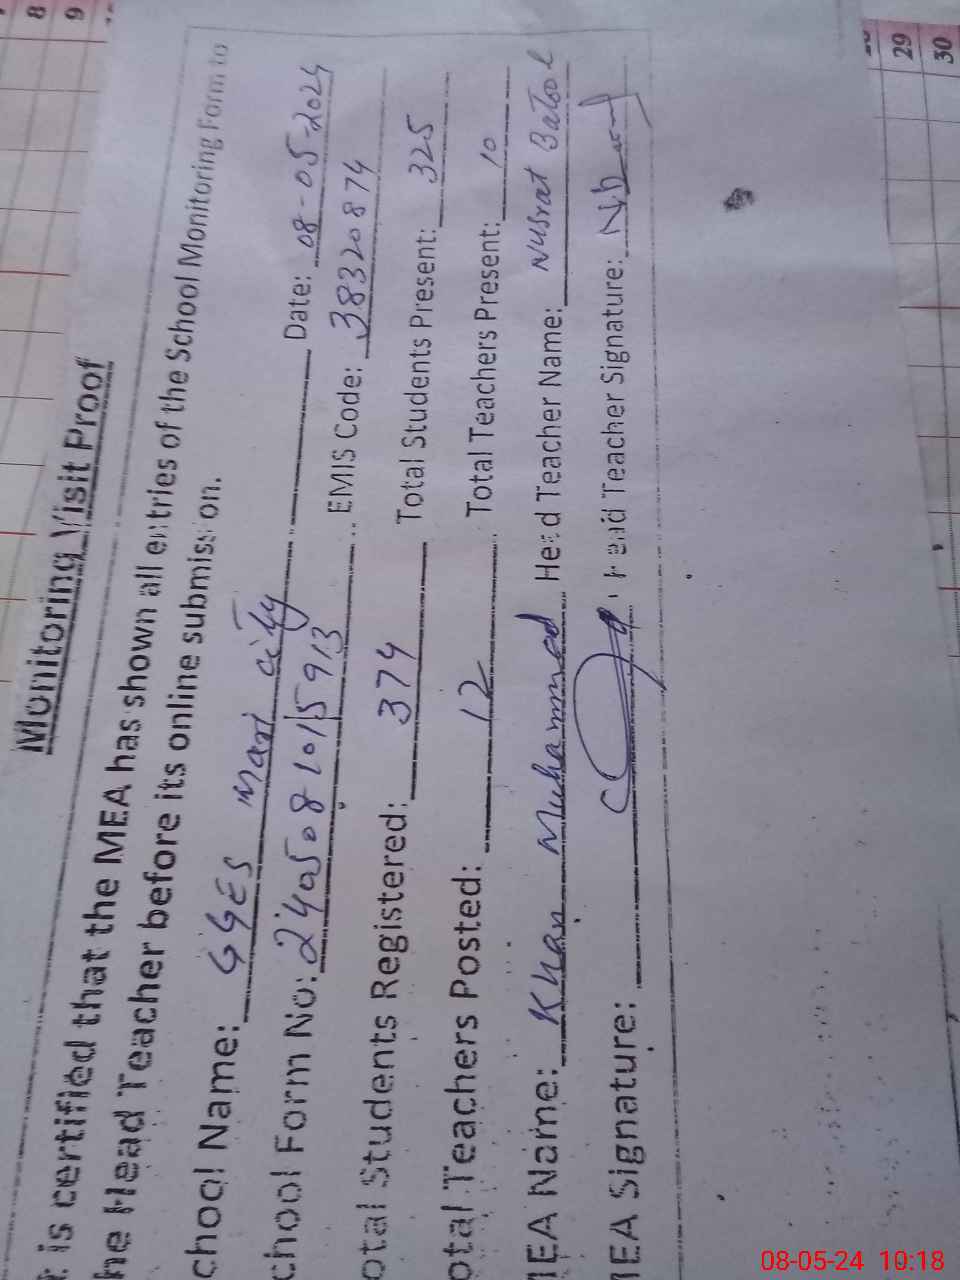 Monitoring Visit Proof
is certified that the MEA has shown all entries of the School Monitoring Form to
he Head Teacher before its online submission.
chool Name: GGES Mari city Date: 08-05-2024
chool Form No: 2405081015913 EMIS Code: 38320874
otal Students Registered: 374 Total Students Present: 325
otal Teachers Posted: 12 Total Teachers Present: 10
MEA Name: Khan Muhammad Head Teacher Name: Nusrat Batool
MEA Signature: Head Teacher Signature:
8
9
29
30
08-05-24 10:18